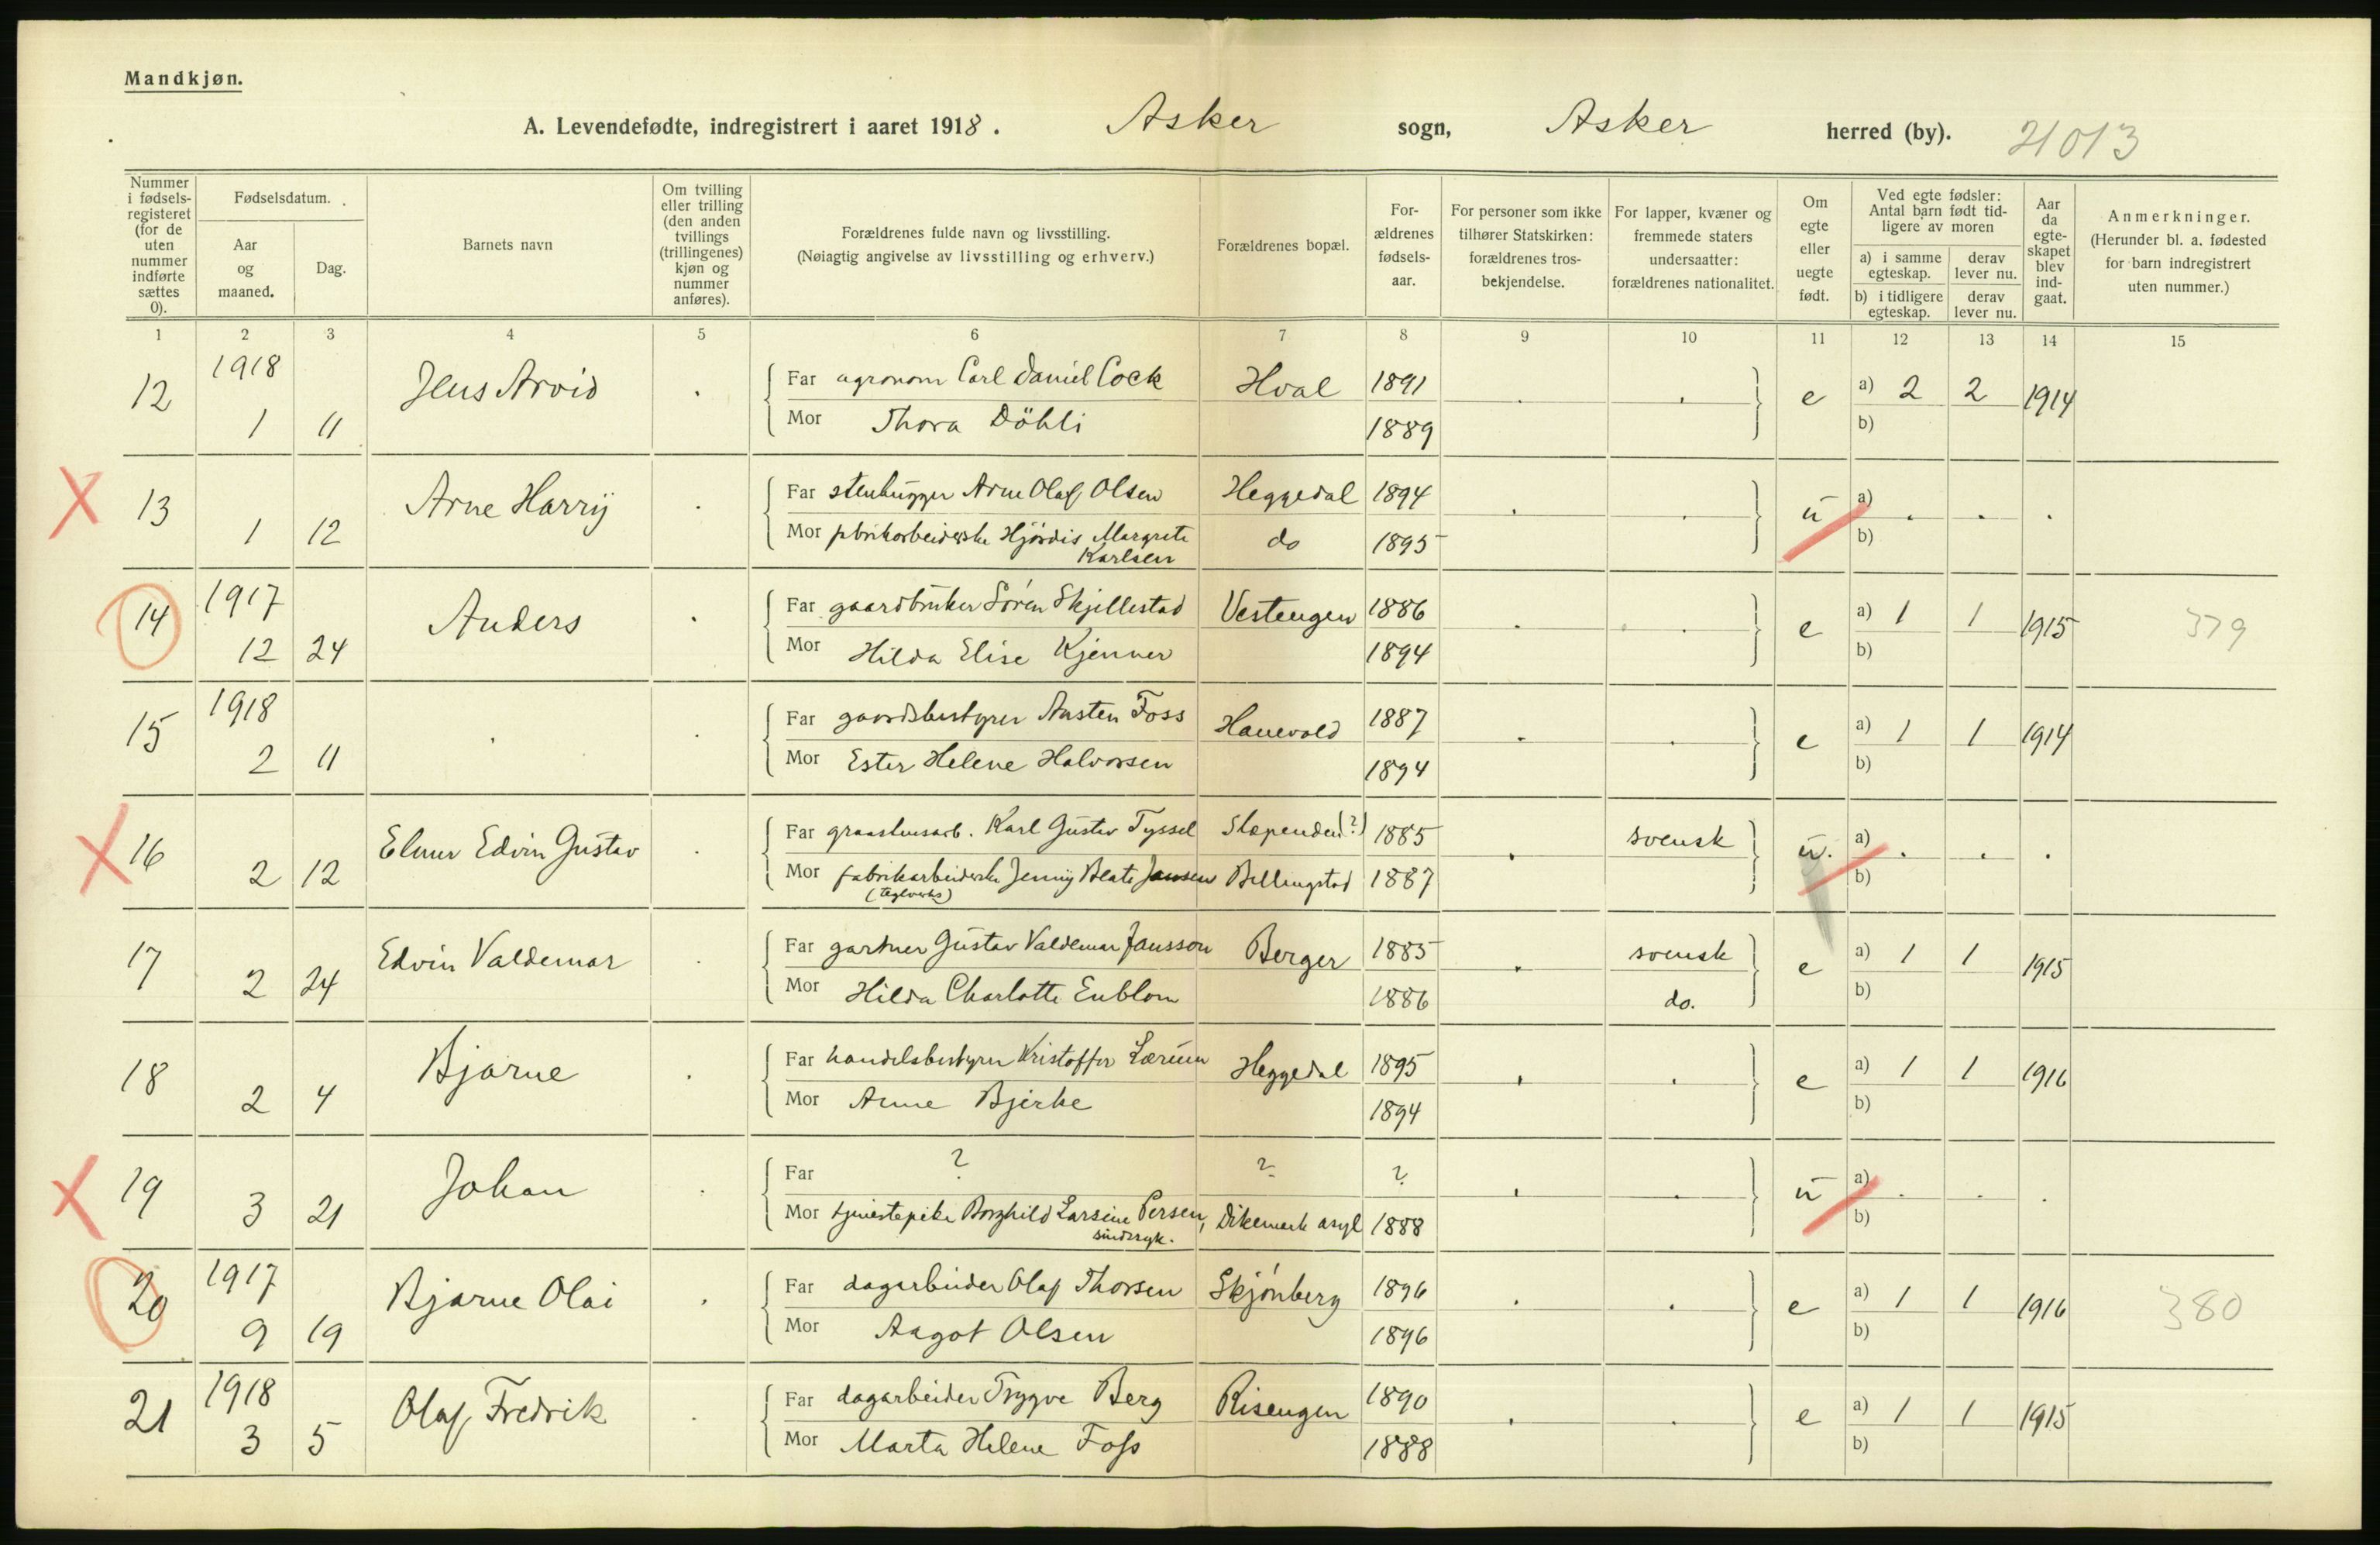 Mandkjøn.
A. Levendefødte, indregistrert i aaret 1918. Asker sogn, Asker herred (by). 21013
Nummer i fødselsregisteret (for de uten nummer indførte sættes 0).
Fødselsdatum.
Aar og maaned.
Dag.
Barnets navn
Om tvilling eller trilling (den anden tvillings (trillingenes) kjøn og nummer anføres).
Forældrenes fulde navn og livsstilling.
(Nøiagtig angivelse av livsstilling og erhverv.)
Forældrenes bopæl.
Forældrenes fødselsaar.
For personer som ikke tilhører Statskirken: forældrenes trosbekjendelse.
For lapper, kvæner og fremmede staters undersaatter: forældrenes nationalitet.
Om egte eller uegte født.
Ved egte fødsler: Antal barn født tidligere av moren
a) i samme egteskap.
derav lever nu.
b) i tidligere egteskap.
derav lever nu.
Aar da egteskapet blev indgaat.
Anmerkninger.
(Herunder bl. a. fødested for barn indregistrert uten nummer.)
1 2 3 4 5 6 7 8 9 10 11 12 13 14 15
12 1918 1 11 Jens Arvid . Far agronom Carl Daniel Cock Hval 1891 . . e a) 2 2 1914
Mor Thora Döhli 1889 b)
X 13 1 12 Arne Harry . Far stenhugger Arne Olaf Olsen Heggedal 1894 . . u a) . . .
Mor fbrikarbeiderske Hjördis Margrete Karlsen do 1895 b)
14 1917 12 24 Anders . Far gaardbruker Sören Skjellestad Vestengen 1886 . . e a) 1 1 1915 379
Mor Hilda Elise Kjenner 1894 b)
15 1918 2 11 . . Far gaardsbestyrer Austen Foss Hanevold 1887 . . e a) 1 1 1914
Mor Ester Helene Halvorsen 1894 b)
X 16 2 12 Elmer Edvin Gustav . Far graashusarb. Karl Gustav Tyssel Slependen(?) 1885 . svensk u. a) . . .
Mor fabrikarbeiderske Jenny Beate Jansen Billingstad 1887 b)
(teglverks)
17 2 24 Edvin Valdemar . Far gartner Gustav Valdemar Jansson Berger 1885 . svensk e a) 1 1 1915
Mor Hilda Charlotte Enblom 1886 do. b)
18 2 4 Bjarne . Far handelsbestyrer Kristoffer Lærum Heggedal 1895 . . e a) 1 1 1916
Mor Anne Bjerke 1894 b)
X 19 3 21 Johan . Far ? ? ? . . u a) . . .
Mor tjenestepike Borghild Larsine Persen, Dikemark asyl 1888 b)
sindssyk.
20 1917 9 19 Bjarne Olai . Far dagarbeider Olaf Thorsen Skjönberg 1896 . . e a) 1 1 1916 380
Mor Aagot Olsen 1896 b)
21 1918 3 5 Olaf Fredrik . Far dagarbeider Trygve Berg Risengen 1890 . . e a) 1 1 1915
Mor Marta Helene Foss 1888 b)